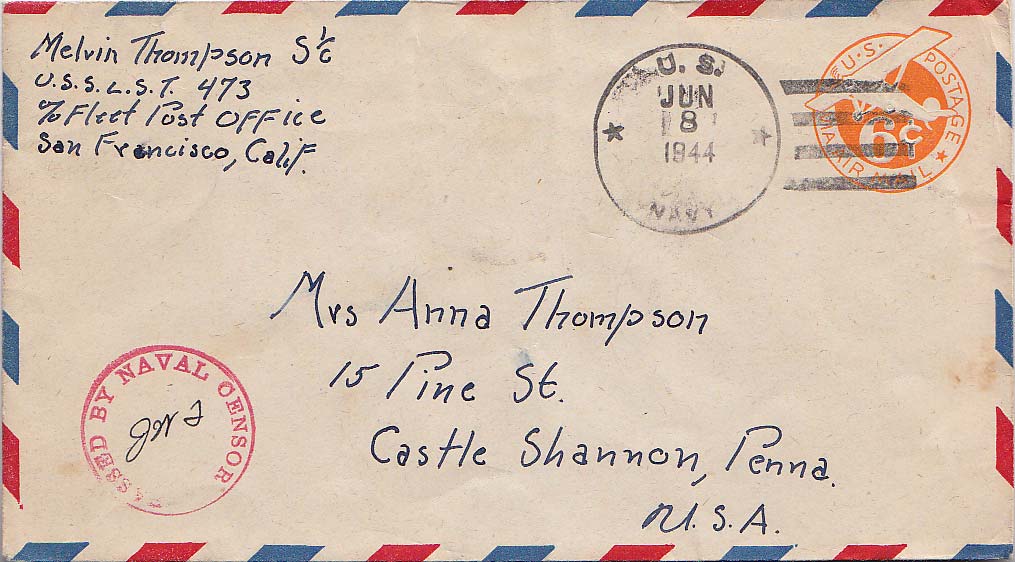 Melvin Thompson S 1/c
U.S.S. L.S.T. 473
℅ Fleet Post Office
San Francisco, Calif.
U. S.
JUN
8
1944
NAVY
U.S. POSTAGE
VIA AIR MAIL
6¢
Mrs Anna Thompson
15 Pine St.
Castle Shannon, Penna.
U.S.A.
PASSED BY NAVAL CENSOR